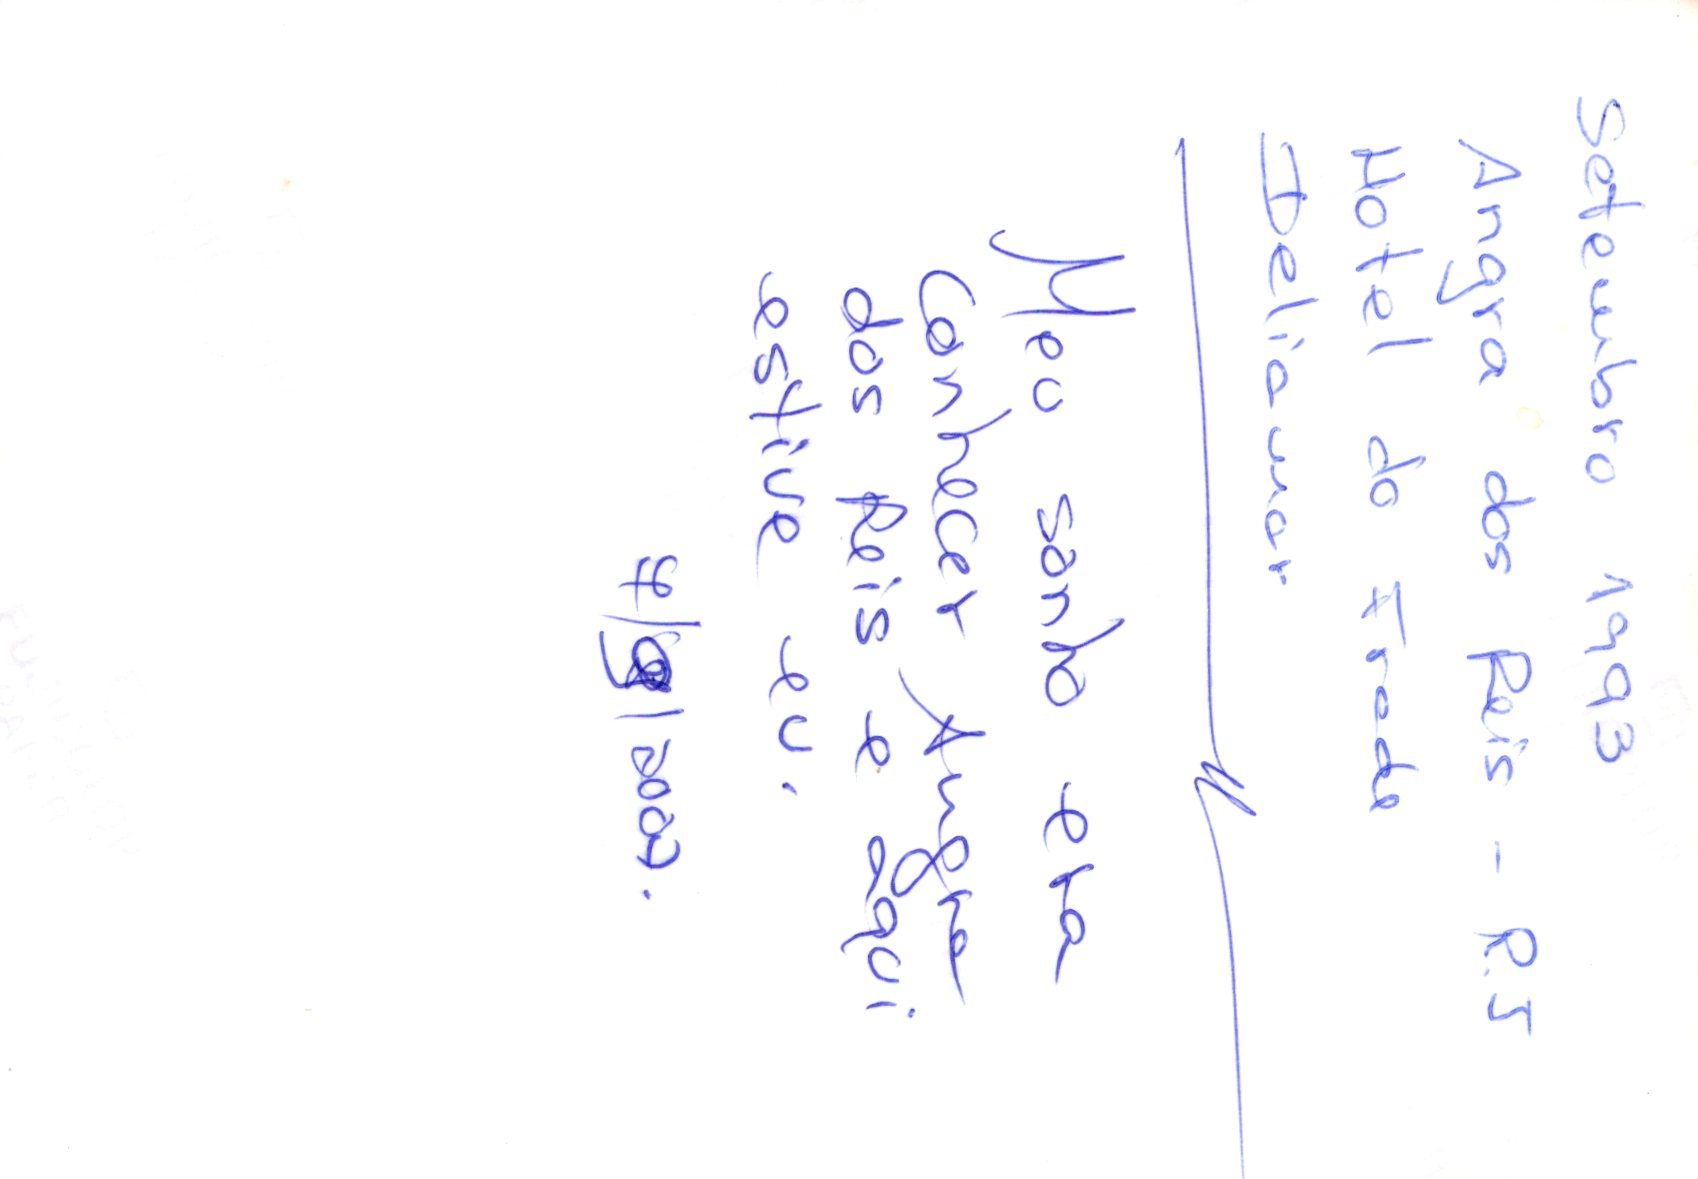 Setembro 1993
Angra dos Reis - R.J
Hotel do Frade
Ideliamar
Meu sonho era
Conhecer Angra
dos Reis e aqui
estive eu.
7/9/2007.